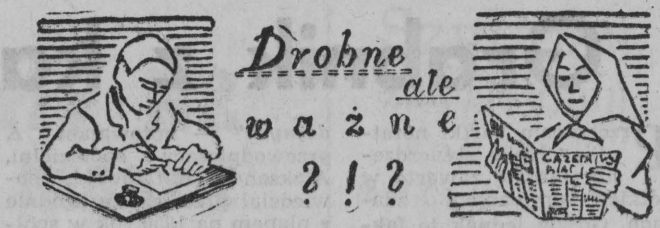 Drobne
ale
ważne
?!?
GAZETA